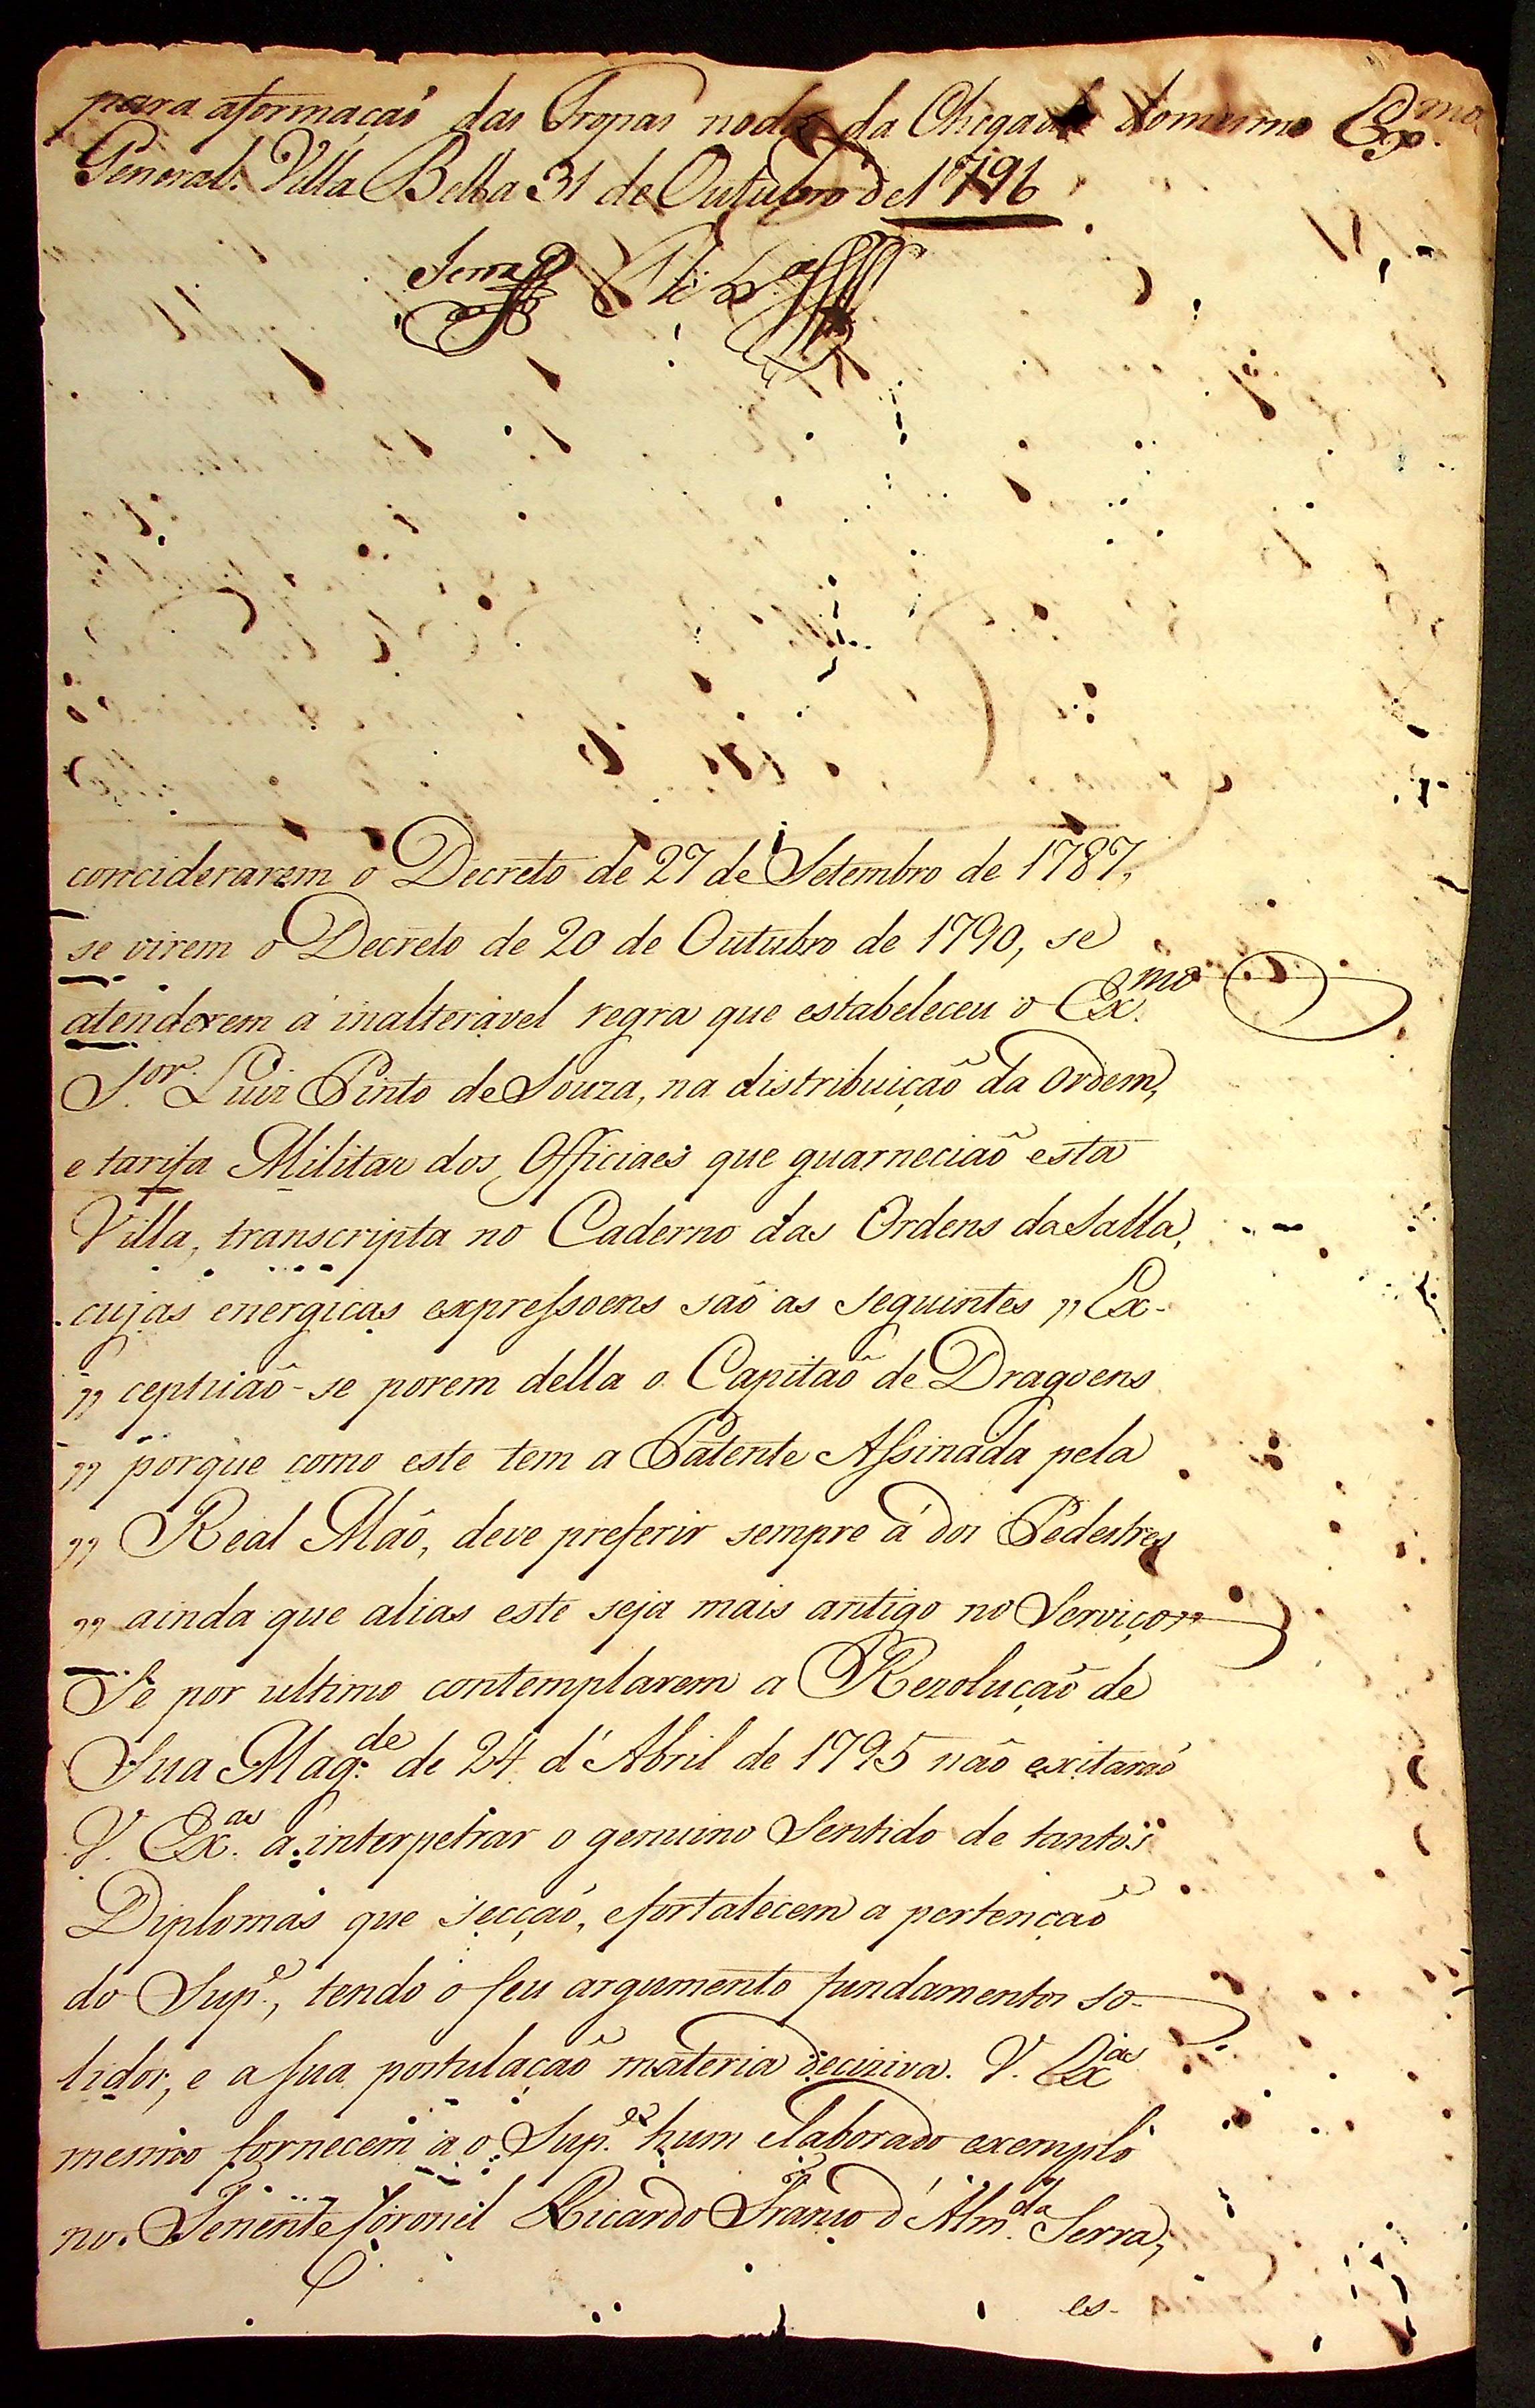 para aformaçaõ das Tropas nodia da Chegada domesmo Ex.mo
General. Villa Bella 31 de Outubro de 1796
Serra
conciderarem o Decreto de 27 de Setembro de 1787,
se virem o Decreto de 20 de Outubro de 1790, se
atenderem á inalteravel regra que estabeleceu o Ex.mo
S.or Luiz Pinto de Souza, na distribuiçaõ da Ordem,
e tarifa Militar dos Officiaes que guarneciaõ esta
Villa, transcripta no Caderno das Ordens da Salla,
cujas energicas expressoens saõ as seguintes „ Ex-
„ ceptuiaõ-se porem della o Capitaõ de Dragoens
„ porque como este tem a Patente Assinada pela
„ Real Maõ, deve preferir sempre á dos Pedestres
„ ainda que alias este seja mais antigo no Serviço„
Se por ultimo contemplarem a Rezoluçaõ de
Sua Mag.de de 24 d'Abril de 1795 naõ exitaraõ
V. Ex.as a interpetrar o genuino Sentido de tantos
Diplomas que secçaõ, efortalecem a pertençaõ
do Sup.e, tendo o seu argumento fundamentos so-
lidos, e a sua postulaçaõ materia deciziva. V. Ex.as
mesmo fornecem a o Sup.e hum elaborado exemplo
no Tenente Coronel Ricardo Franco d'Alm.da Serra,
es-